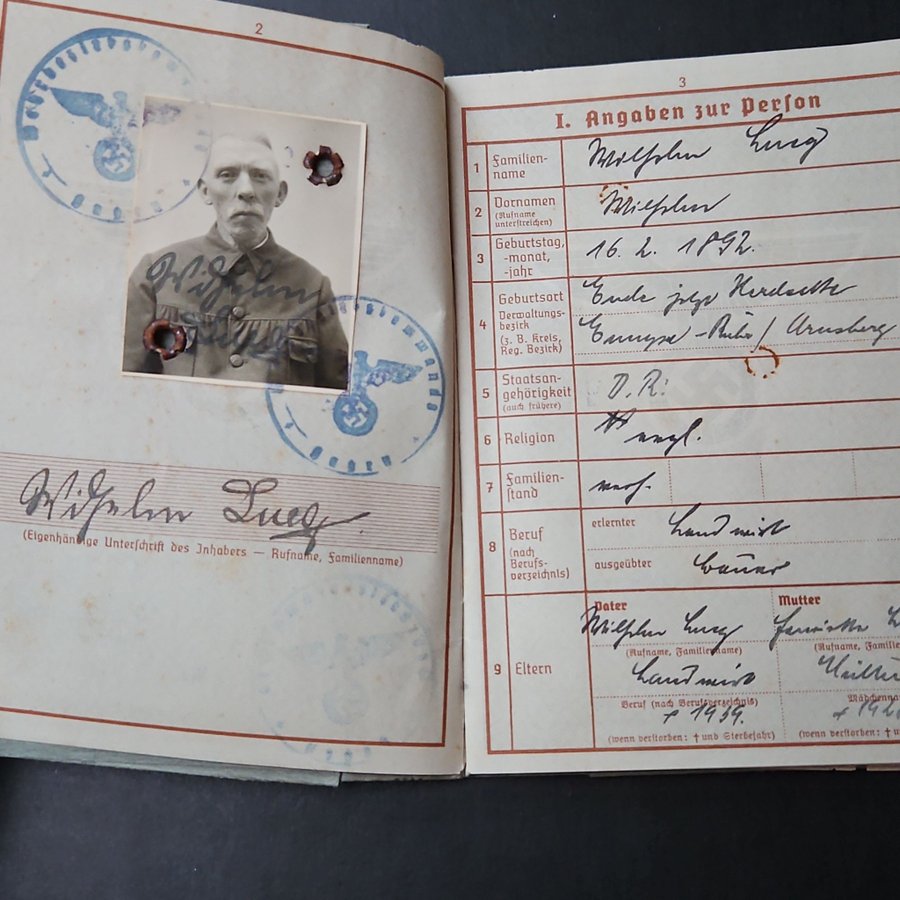 2
Wilhelm
Wilhelm Lueg
(Eigenhändige Unterschrift des Inhabers — Rufname, Familienname)
3
I. Angaben zur Person
1 Familien-
name
Wilhelm Lueg
2 Vornamen
(Rufname
unterstreichen)
Wilhelm
3 Geburtstag,
-monat,
-jahr
16. 2. 1892.
4 Geburtsort
Verwaltungs-
bezirk
(z. B. Kreis,
Reg. Bezirk)
Ende jetzt Herdecke
Ennepe-Ruhr / Arnsberg
5 Staatsan-
gehörigkeit
(auch frühere)
D. R.
6 Religion
evgl.
7 Familien-
stand
verh.
8 Beruf
(nach
Berufs-
verzeichnis)
erlernter Landwirt
ausgeübter Bauer
9 Eltern
Vater Mutter
Wilhelm Lueg
(Rufname, Familienname) (Rufname, Famili
Landwirt
Beruf (nach Berufsverzeichnis) Mädchenna
† 1939.
(wenn verstorben: † und Sterbejahr) (wenn verstorben: † u